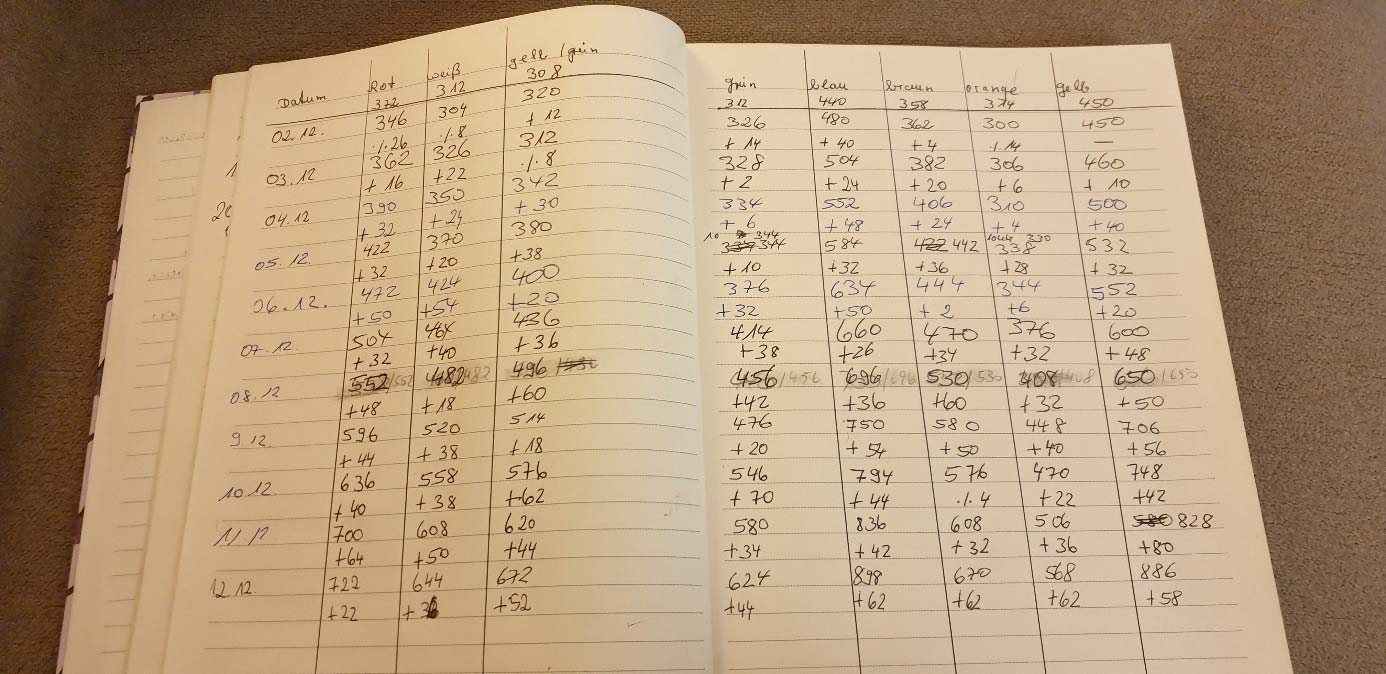 Datum Rot weiß gelb/grün
372 312 308
02.12. 346 304 320
./.26 ./.8 + 12
03.12 362 326 312
+ 16 +22 ./.8
04.12 390 350 342
+ 32 + 24 + 30
05.12. 422 370 380
+32 +20 +38
06.12. 472 424 400
+50 +54 +20
07.12. 504 464 436
+32 +40 +36
08.12 552/552 482/482 496
+48 +18 +60
9.12 596 520 514
+44 +38 +18
10.12 636 558 576
+40 +38 +62
11.12 700 608 620
+64 +50 +44
12.12. 722 644 672
+22 +36 +52
grün blau braun orange gelb
312 440 358 374 450
326 480 362 300 450
+ 14 + 40 +4 ./.14 —
328 504 382 306 460
+ 2 +24 +20 +6 + 10
334 552 406 310 500
+ 6 +48 + 24 + 4 +40
10 344 330
334 344 584 422 442 338 532
+10 +32 +36 +28 +32
376 634 444 344 552
+32 +50 + 2 +6 +20
414 660 470 376 600
+38 +26 +34 +32 +48
456/456 696/696 530/530 408/408 650/650
+42 +36 +60 +32 +50
476 750 580 448 706
+20 + 54 +50 +40 +56
546 794 576 470 748
+ 70 +44 ./.4 +22 +42
580 836 608 506 580 828
+34 +42 +32 +36 +80
624 898 670 568 886
+44 +62 +62 +62 +58